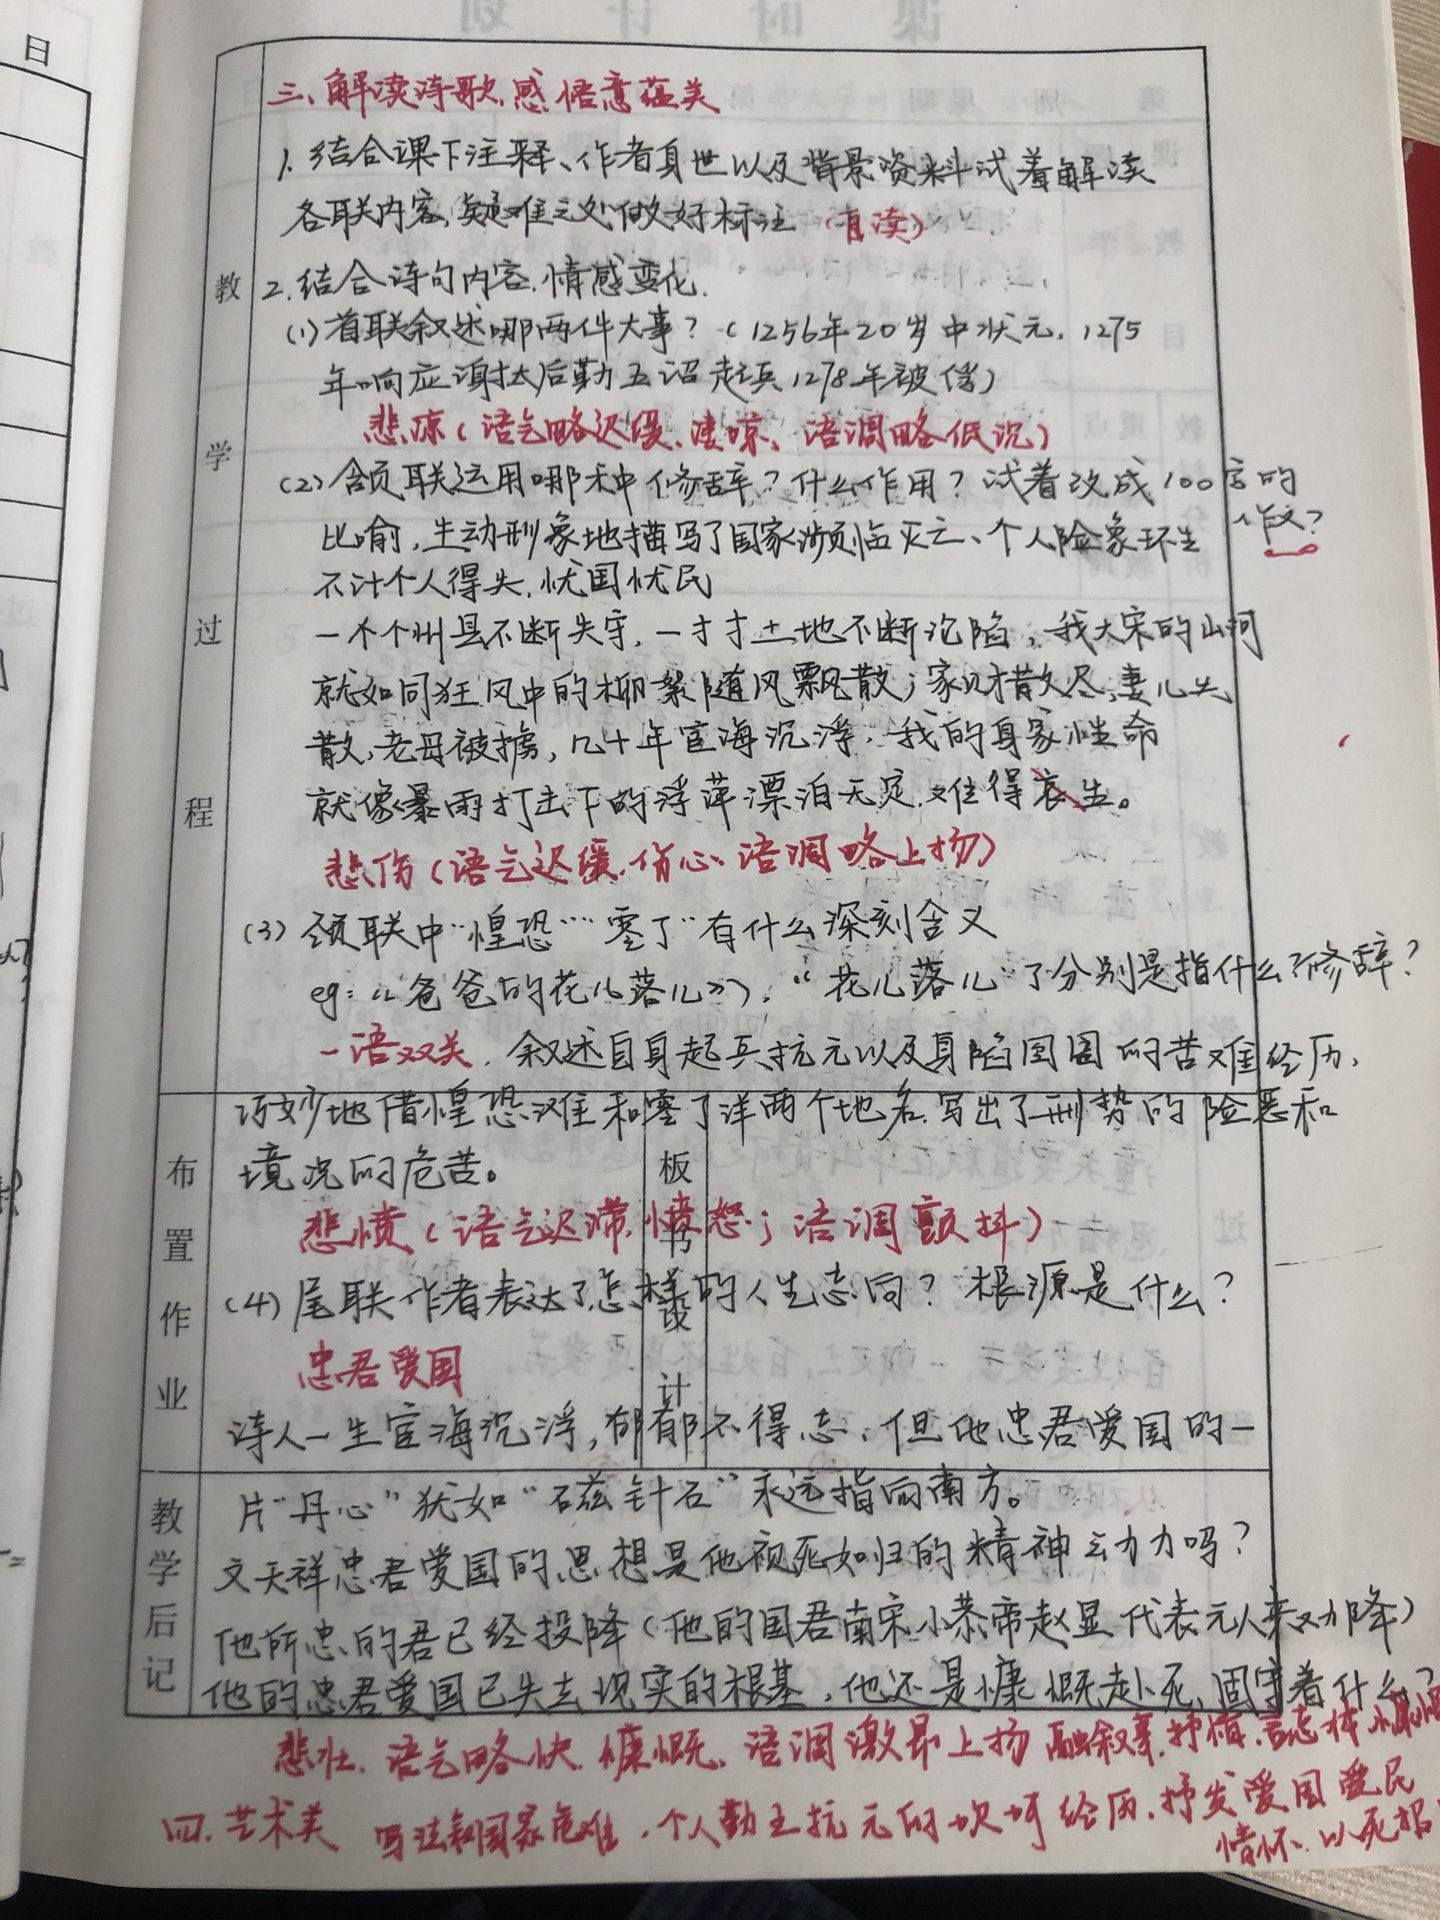 日
三、解读诗歌,感悟意蕴美
1.结合课下注释、作者身世以及背景资料试着解读
各联内容,疑难之处做好标注 (自读)
2.结合诗句内容.情感变化.
(1)首联叙述哪两件大事?(1256年20岁中状元.1275
年响应谢太后勤王诏起兵1278年被俘)
悲凉(语气略迟缓、凄凉、语调略低沉)
(2)颔联运用哪种修辞?什么作用?试着改成100字的
作文?
比喻,生动形象地描写了国家濒临灭亡、个人险象环生
不计个人得失,忧国忧民
一个个州县不断失守,一寸寸土地不断沦陷,我大宋的山河
就如同狂风中的柳絮随风飘散;家财散尽,妻儿失
散,老母被掳,几十年宦海沉浮,我的身家性命
就像暴雨打击下的浮萍漂泊无定,难得生。
悲伤(语气迟缓,伤心.语调略上扬)
(3)颈联中“惶恐”“零丁”有什么深刻含义
eg:《爸爸的花儿落儿》,“花儿落儿”了分别是指什么?修辞?
一语双关.叙述自身起兵抗元以及身陷囹圄的苦难经历,
巧妙地借惶恐滩和零丁洋两个地名.写出了形势的险恶和
境况的危苦。
悲愤(语气迟滞,愤怒;语调颤抖)
(4)尾联作者表达了怎样的人生志向?根源是什么?
忠君爱国
诗人一生宦海沉浮,郁郁不得志,但他忠君爱国的一
片“丹心”犹如“磁针石”永远指向南方。
文天祥忠君爱国的思想是他视死如归的精神动力吗?
他所忠的君已经投降(他的国君南宋小恭帝赵显代表元人来劝降)
他的忠君爱国已失去现实的根基,他还是慷慨赴死,固守着什么?
悲壮.语气略快.慷慨、语调激昂上扬 融叙事.抒情.言志
四.艺术美 写法 国家危难,个人勤王抗元的坎坷经历.抒发爱国爱民
情怀.以死报
教
学
过
程
布
置
作
业
板
书
设
计
教
学
后
记